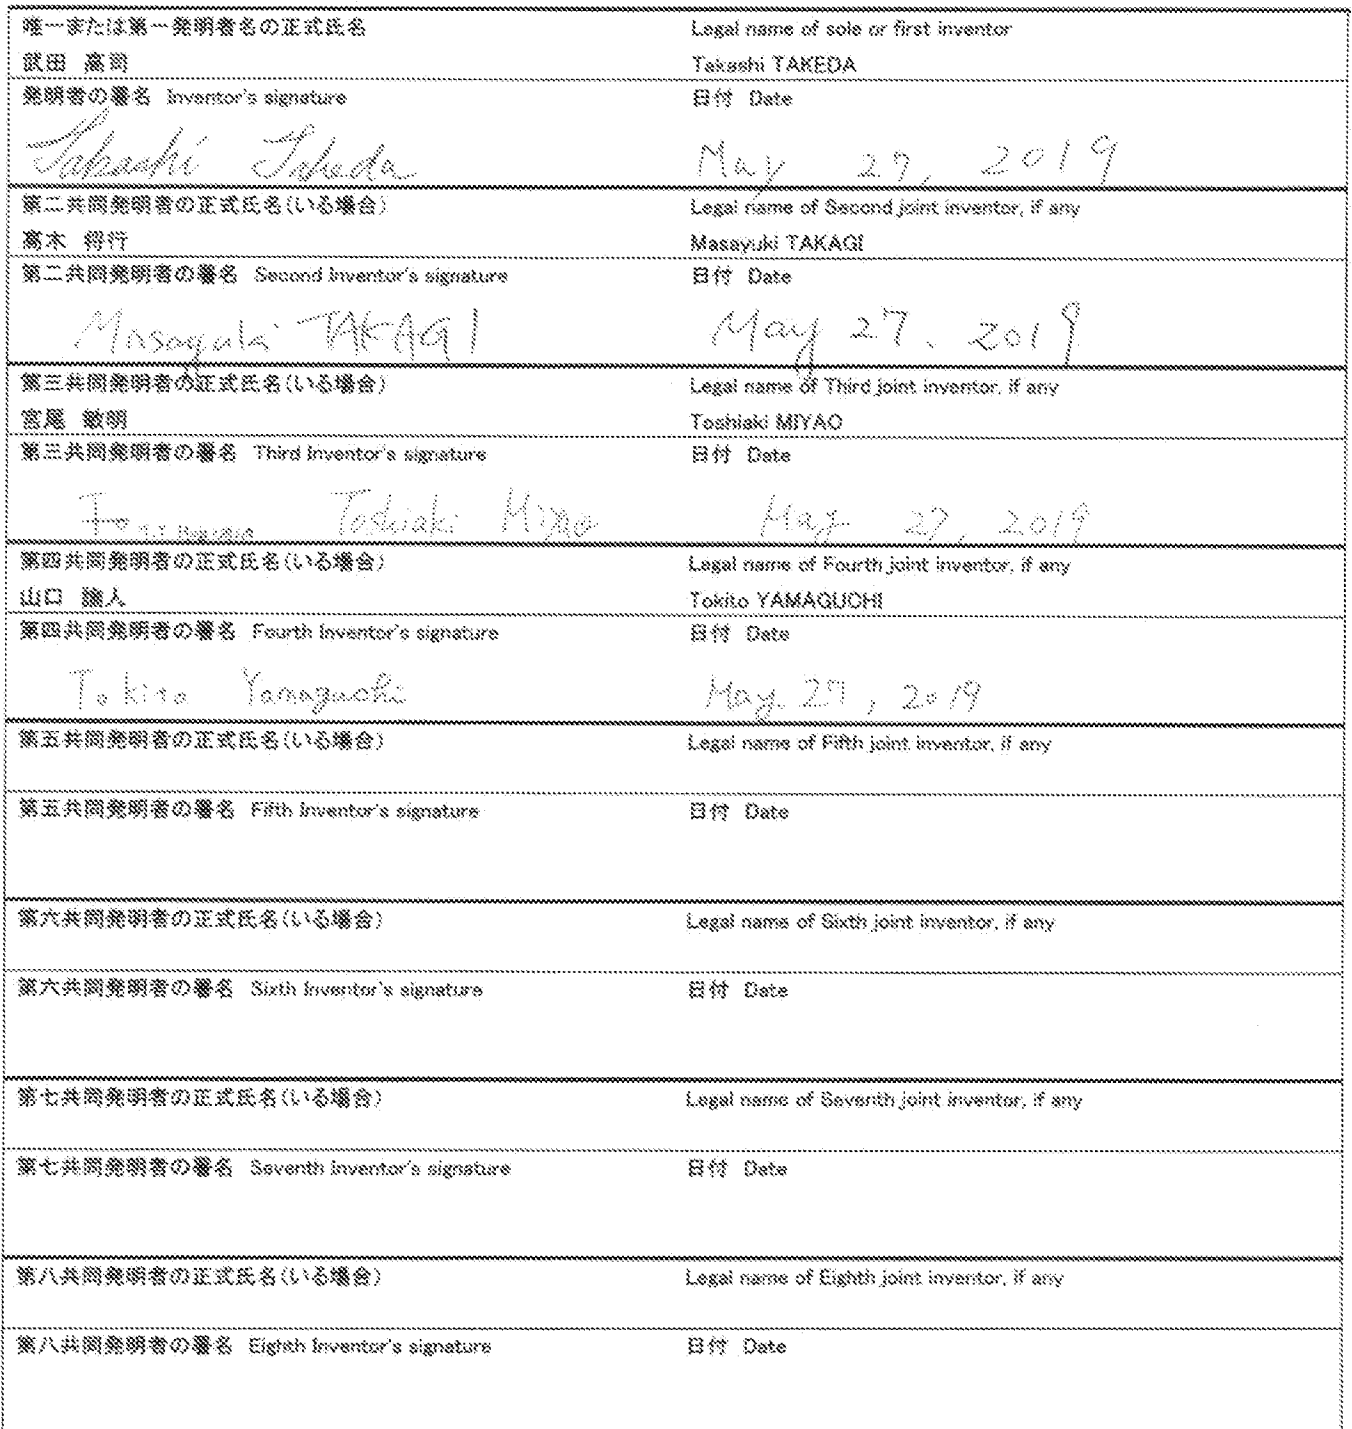 唯一または第一発明者名の正式氏名 Legal name of sole or first inventor
武田 高司 Takashi TAKEDA
発明者の署名 Inventor's signature 日付 Date
Takashi Takeda May 27, 2019
第二共同発明者の正式氏名(いる場合) Legal name of Second joint inventor, if any
高木 将行 Masayuki TAKAGI
第二共同発明者の署名 Second Inventor's signature 日付 Date
Masayuki TAKAGI May 27. 2019
第三共同発明者の正式氏名(いる場合) Legal name of Third joint inventor, if any
宮尾 敏明 Toshiaki MIYAO
第三共同発明者の署名 Third Inventor's signature 日付 Date
Toshiaki Miyao May 27, 2019
第四共同発明者の正式氏名(いる場合) Legal name of Fourth joint inventor, if any
山口 人 Tokito YAMAGUCHI
第四共同発明者の署名 Fourth Inventor's signature 日付 Date
Tokito Yamaguchi May 27, 2019
第五共同発明者の正式氏名(いる場合) Legal name of Fifth joint inventor, if any
第五共同発明者の署名 Fifth Inventor's signature 日付 Date
第六共同発明者の正式氏名(いる場合) Legal name of Sixth joint inventor, if any
第六共同発明者の署名 Sixth Inventor's signature 日付 Date
第七共同発明者の正式氏名(いる場合) Legal name of Seventh joint inventor, if any
第七共同発明者の署名 Seventh Inventor's signature 日付 Date
第八共同発明者の正式氏名(いる場合) Legal name of Eighth joint inventor, if any
第八共同発明者の署名 Eighth Inventor's signature 日付 Date